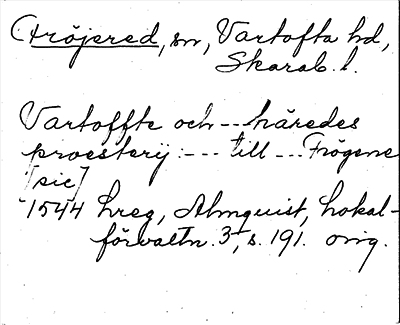 Fröjered, sn, Vartofta hd,
Skarab. l.
Vartoffte och --- häredes
proesterij: --- till --- Frögene
[sic]
1544 hreg, Almquist, Lokal-
förvaltn. 3, s. 191. orig.